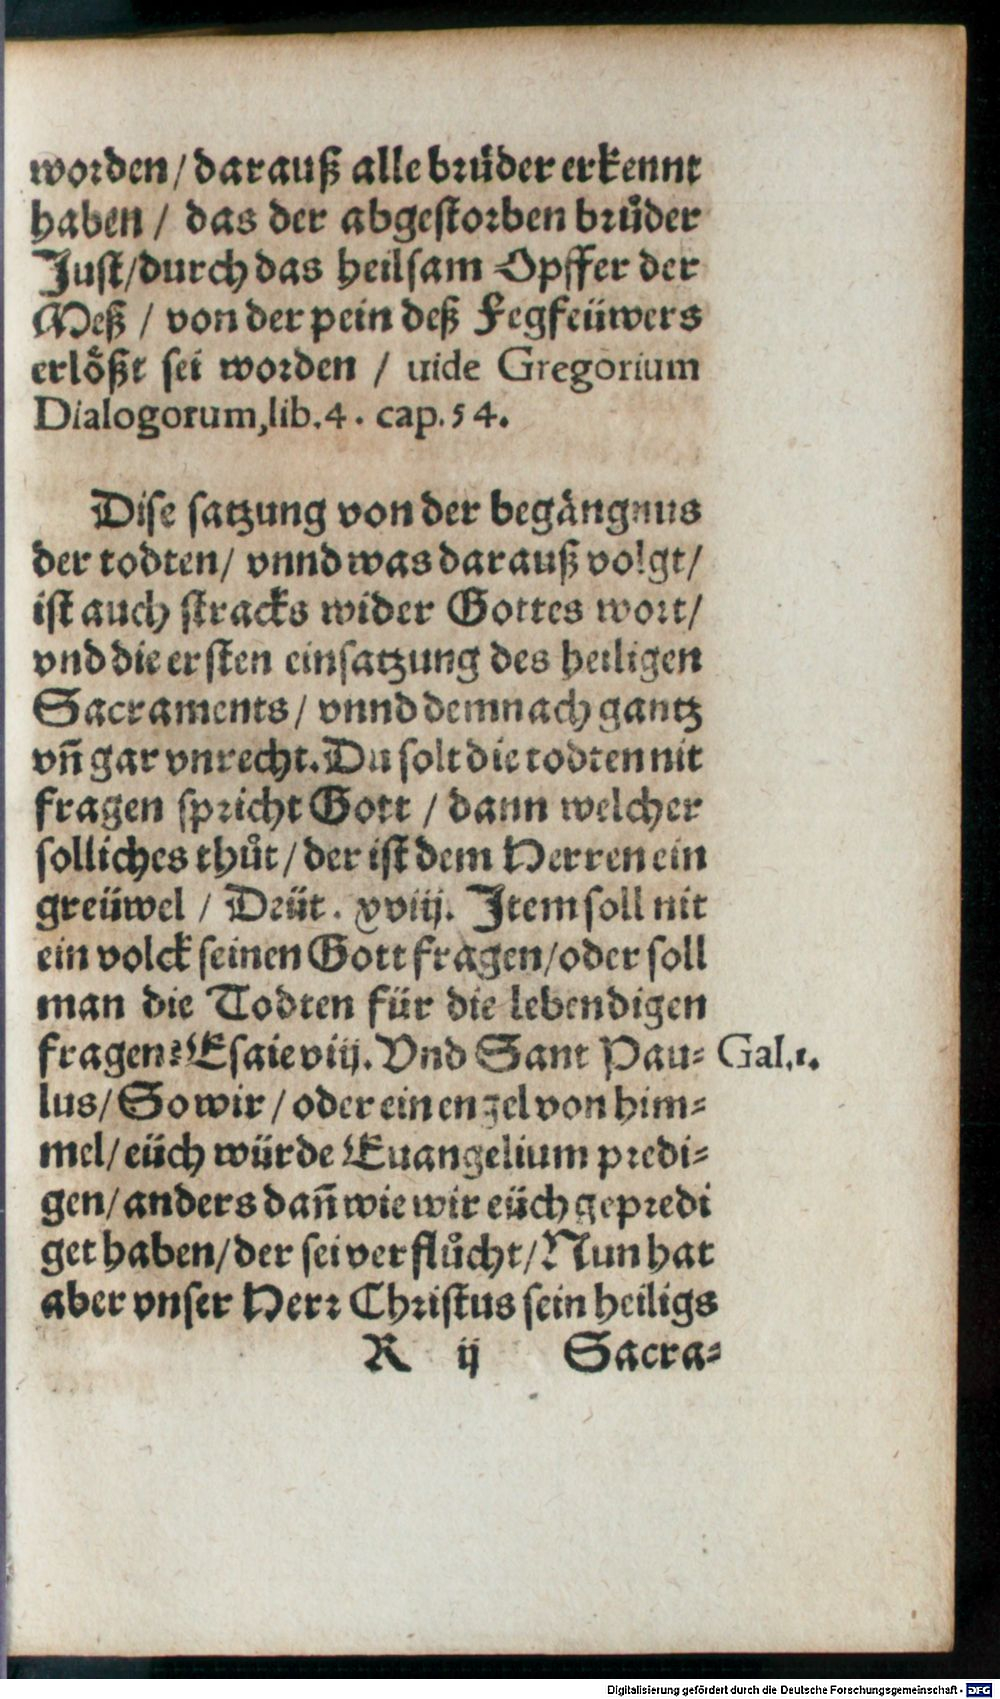 worden / darauß alle brüder erkennt
haben / das der abgestorben brůder
Just / durch das heilsam Opffer der
Meß / von der pein deß Fegfeüwers
erlößt sei worden / uide Gregorium
Dialogorum, lib. 4. cap. 54.
Dise satzung von der begängnus
der todten / vnnd was darauß volgt /
ist auch stracks wider Gottes wort /
vnd die ersten einsatzung des heiligen
Sacraments / vnnd demnach gantz
vn̄ gar vnrecht. Du solt die todten nit
fragen spricht Gott / dann welcher
solliches thůt / der ist dem Herren ein
greüwel / Deüt. xviij. Item soll nit
ein volck seinen Gott fragen / oder soll
man die Todten für die lebendigen
fragen? Esaie viij. Vnd Sant Pau-
Gal. 1.
lus / So wir / oder ein engel von him-
mel / eüch würde Euangelium predi-
gen / anders dan̄ wie wir eüch gepredi
get haben / der sei verflůcht / Nun hat
aber vnser Herr Christus sein heiligs
R ij Sacra-
Digitalisierung gefördert durch die Deutsche Forschungsgemeinschaft - DFG